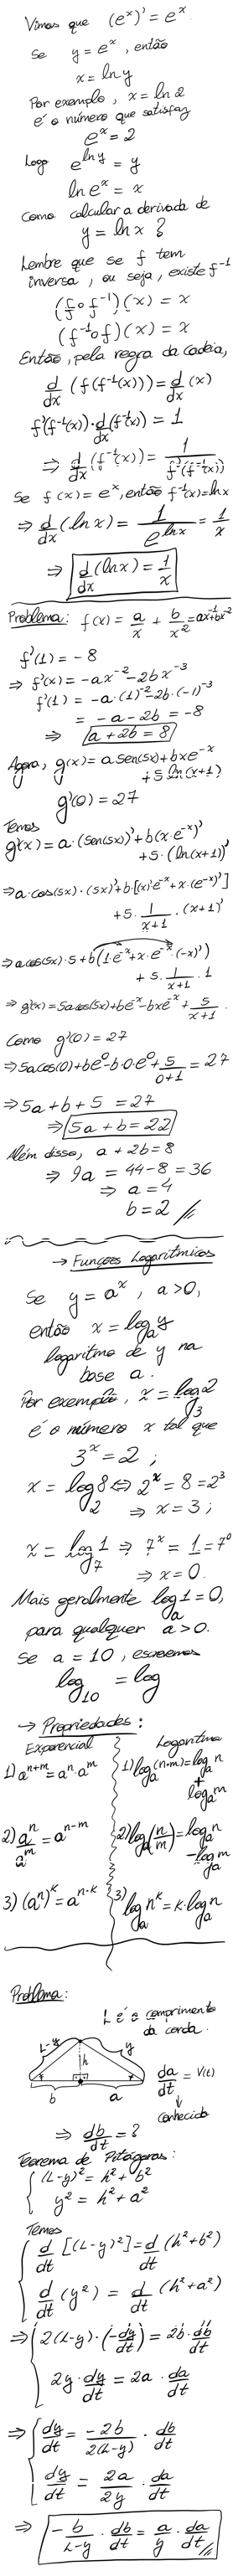 Vimos que (eˣ)' = eˣ.
Se y = eˣ, então
x = ln y
Por exemplo, x = ln 2
é o número que satisfaz
eˣ = 2
Logo e^{ln y} = y
ln eˣ = x
Como calcular a derivada de
y = ln x ?
Lembre que se f tem
inversa, ou seja, existe f⁻¹
(f∘f⁻¹)(x) = x
(f⁻¹∘f)(x) = x
Então, pela regra da cadeia,
d/dx (f(f⁻¹(x))) = d/dx (x)
f'(f⁻¹(x)) · d/dx (f⁻¹(x)) = 1
⇒ d/dx (f⁻¹(x)) = 1/f'(f⁻¹(x))
Se f(x) = eˣ, então f⁻¹(x) = ln x
⇒ d/dx (ln x) = 1/e^{ln x} = 1/x
⇒ d/dx (ln x) = 1/x
Problema: f(x) = a/x + b/x² = ax⁻¹ + bx⁻²
f'(1) = -8
⇒ f'(x) = -ax⁻² - 2bx⁻³
f'(1) = -a·(1)⁻² - 2b·(-1)⁻³
= -a - 2b = -8
⇒ a + 2b = 8
Agora, g(x) = a sen(5x) + bxe⁻ˣ
+ 5 ln(x+1)
g'(0) = 27
Temos
g'(x) = a·(sen(5x))' + b(x·e⁻ˣ)'
+ 5·(ln(x+1))'
⇒ a·cos(5x)·(5x)' + b·[(x)'e⁻ˣ + x·(e⁻ˣ)']
+ 5·1/(x+1)·(x+1)'
⇒ a cos(5x)·5 + b(1·e⁻ˣ + x·e⁻ˣ·(-x)')
+ 5·1/(x+1)·1
⇒ g'(x) = 5a cos(5x) + be⁻ˣ - bxe⁻ˣ + 5/(x+1).
Como g'(0) = 27
⇒ 5a cos(0) + be⁰ - b·0·e⁰ + 5/(0+1) = 27
⇒ 5a + b + 5 = 27
⇒ 5a + b = 22
Além disso, a + 2b = 8
⇒ 9a = 44 - 8 = 36
⇒ a = 4
b = 2 //
→ Funções Logarítmicas
Se y = aˣ, a > 0,
então x = logₐ y
logaritmo de y na
base a.
Por exemplo, x = log₃ 2
é o número x tal que
3ˣ = 2;
x = log₂ 8 ⇔ 2ˣ = 8 = 2³
⇒ x = 3;
x = log₇ 1 ⇒ 7ˣ = 1 = 7⁰
⇒ x = 0.
Mais geralmente logₐ 1 = 0,
para qualquer a > 0.
Se a = 10, escrevemos
log₁₀ = log
→ Propriedades:
Exponencial Logaritmo
1) aⁿ⁺ᵐ = aⁿ·aᵐ 1) logₐ(n·m) = logₐ n + logₐ m
2) aⁿ/aᵐ = aⁿ⁻ᵐ 2) logₐ(n/m) = logₐ n - logₐ m
3) (aⁿ)ᵏ = aⁿ·ᵏ 3) logₐ nᵏ = k·logₐ n
Problema:
L é o comprimento
da corda.
L-y y
h
b a
da/dt = V(t)
↓
conhecido
⇒ db/dt = ?
Teorema de Pitágoras:
{ (L-y)² = h² + b²
y² = h² + a²
Temos
{ d/dt [(L-y)²] = d/dt (h²+b²)
d/dt (y²) = d/dt (h²+a²)
⇒ { 2(L-y)·(-dy/dt) = 2b·db/dt
2y·dy/dt = 2a·da/dt
⇒ { dy/dt = -2b/2(L-y) · db/dt
dy/dt = 2a/2y · da/dt
⇒ -b/(L-y) · db/dt = a/y · da/dt //